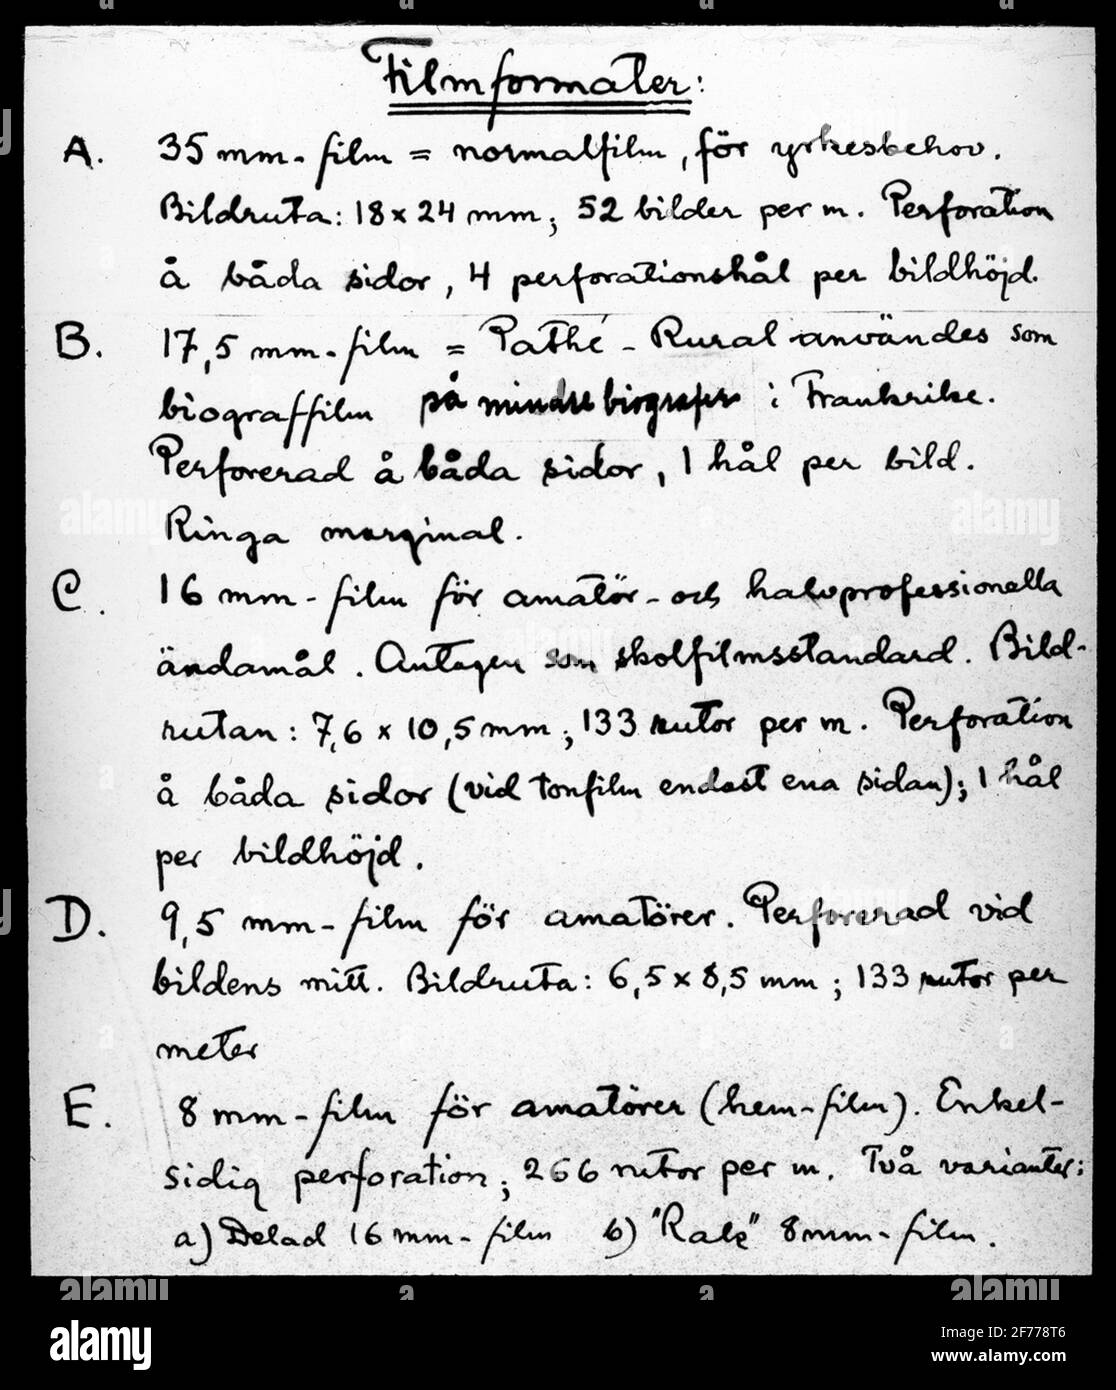 Filmformater:
A. 35 mm-film = normalfilm, för yrkesbehov.
Bildruta: 18 x 24 mm; 52 bilder per m. Perforation
å båda sidor, 4 perforationshål per bildhöjd.
B. 17,5 mm-film = Pathé-Rural användes som
biograffilm på mindre biografer i Frankrike.
Perforerad å båda sidor, 1 hål per bild.
Ringa marginal.
C. 16 mm-film för amatör- och halvprofessionella
ändamål. Antagen som skolfilmsstandard. Bild-
rutan: 7,6 x 10,5 mm; 133 rutor per m. Perforation
å båda sidor (vid tonfilm endast ena sidan); 1 hål
per bildhöjd.
D. 9,5 mm-film för amatörer. Perforerad vid
bildens mitt. Bildruta: 6,5 x 8,5 mm; 133 rutor per
meter
E. 8 mm-film för amatörer (hem-film). Enkel-
sidig perforation; 266 rutor per m. Två varianter:
a) Delad 16 mm-film b) "Rak" 8mm-film.
alamy
Image ID: 2F778T6
www.alamy.com